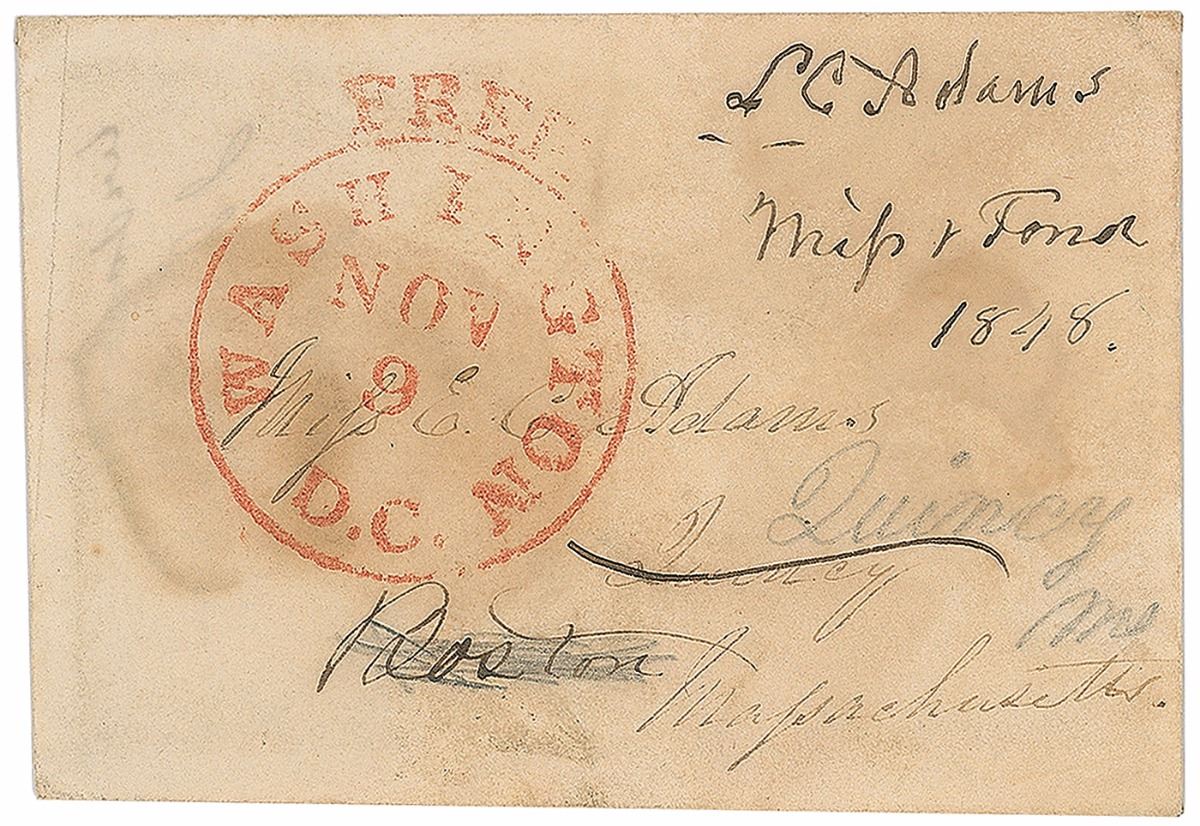 L C Adams
FREE
WASHINGTON
D.C.
NOV
9
1848.
Miss E. C. Adams
Quincy
Quincy
Ms
Boston
Massachusetts.